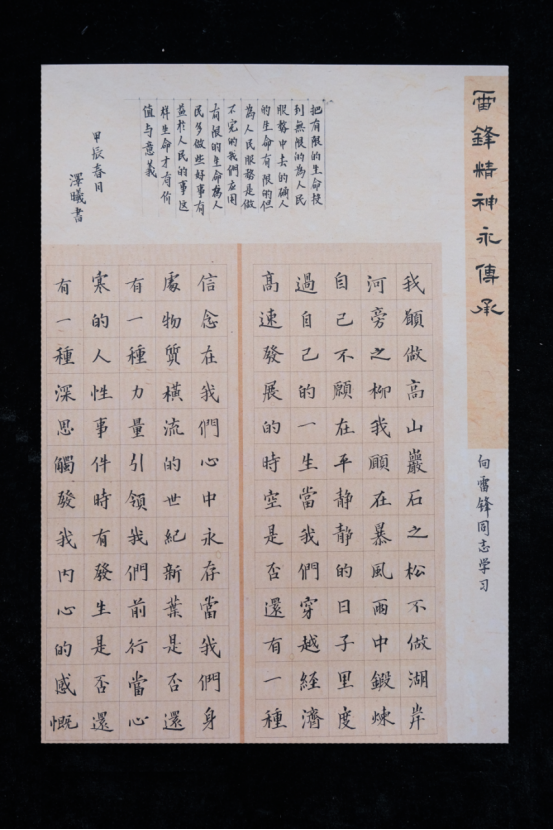 雷鋒精神永傳承
向雷锋同志学习
把有限的生命投
到無限的為人民
服務中去的确人
的生命有限的但
為人民服務是做
不完的我們应用
有限的生命為人
民多做些好事有
益於人民的事这
样生命才有价
值与意義
甲辰春月
澤曦書
我願做高山巖石之松不做湖岸
河旁之柳我願在暴風雨中鍛煉
自己不願在平静静的日子里度
過自己的一生當我們穿越經濟
高速發展的時空是否還有一種
信念在我們心中永存當我們身
處物質橫流的世紀新葉是否還
有一種力量引領我們前行當心
寒的人性事件時有發生是否還
有一種深思觸發我內心的感慨